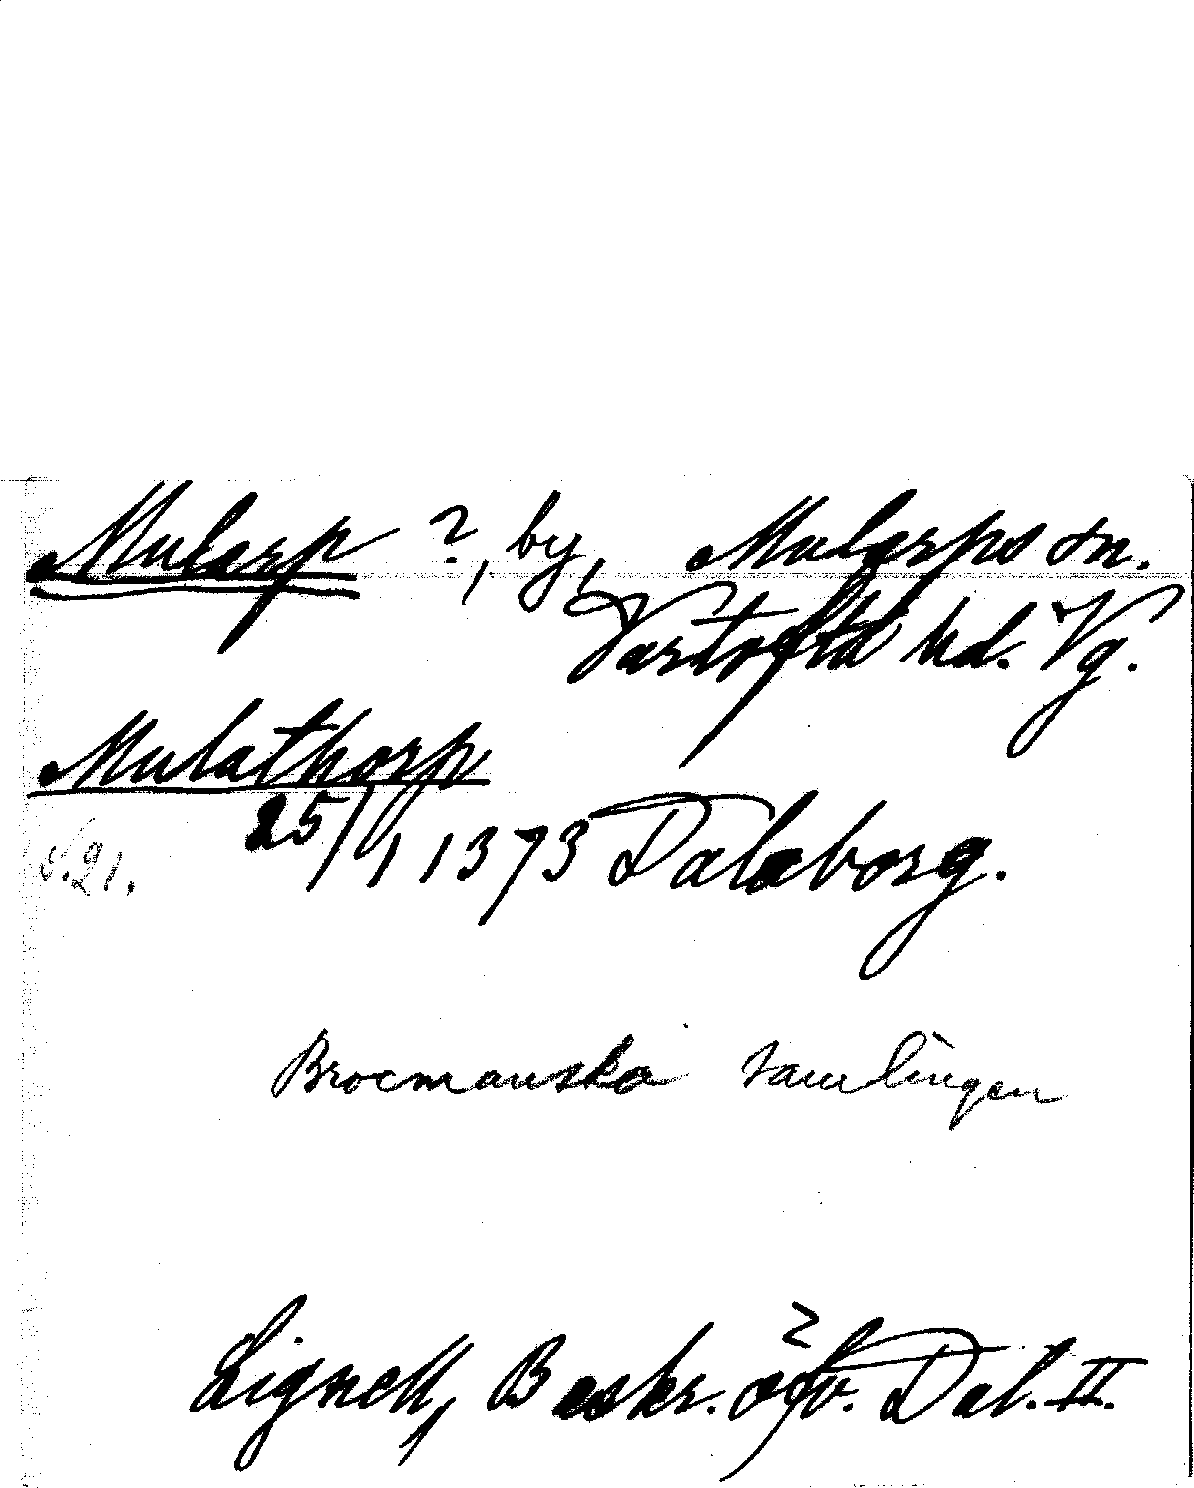 Mularp ?, by, Mularps sn.
Vartofta hd. Vg.
Mulathorp
25/1 1373 Dalaborg.
s. 91.
Brocmanska samlingen
Lignell, Beskr. öfv. Dal. II.